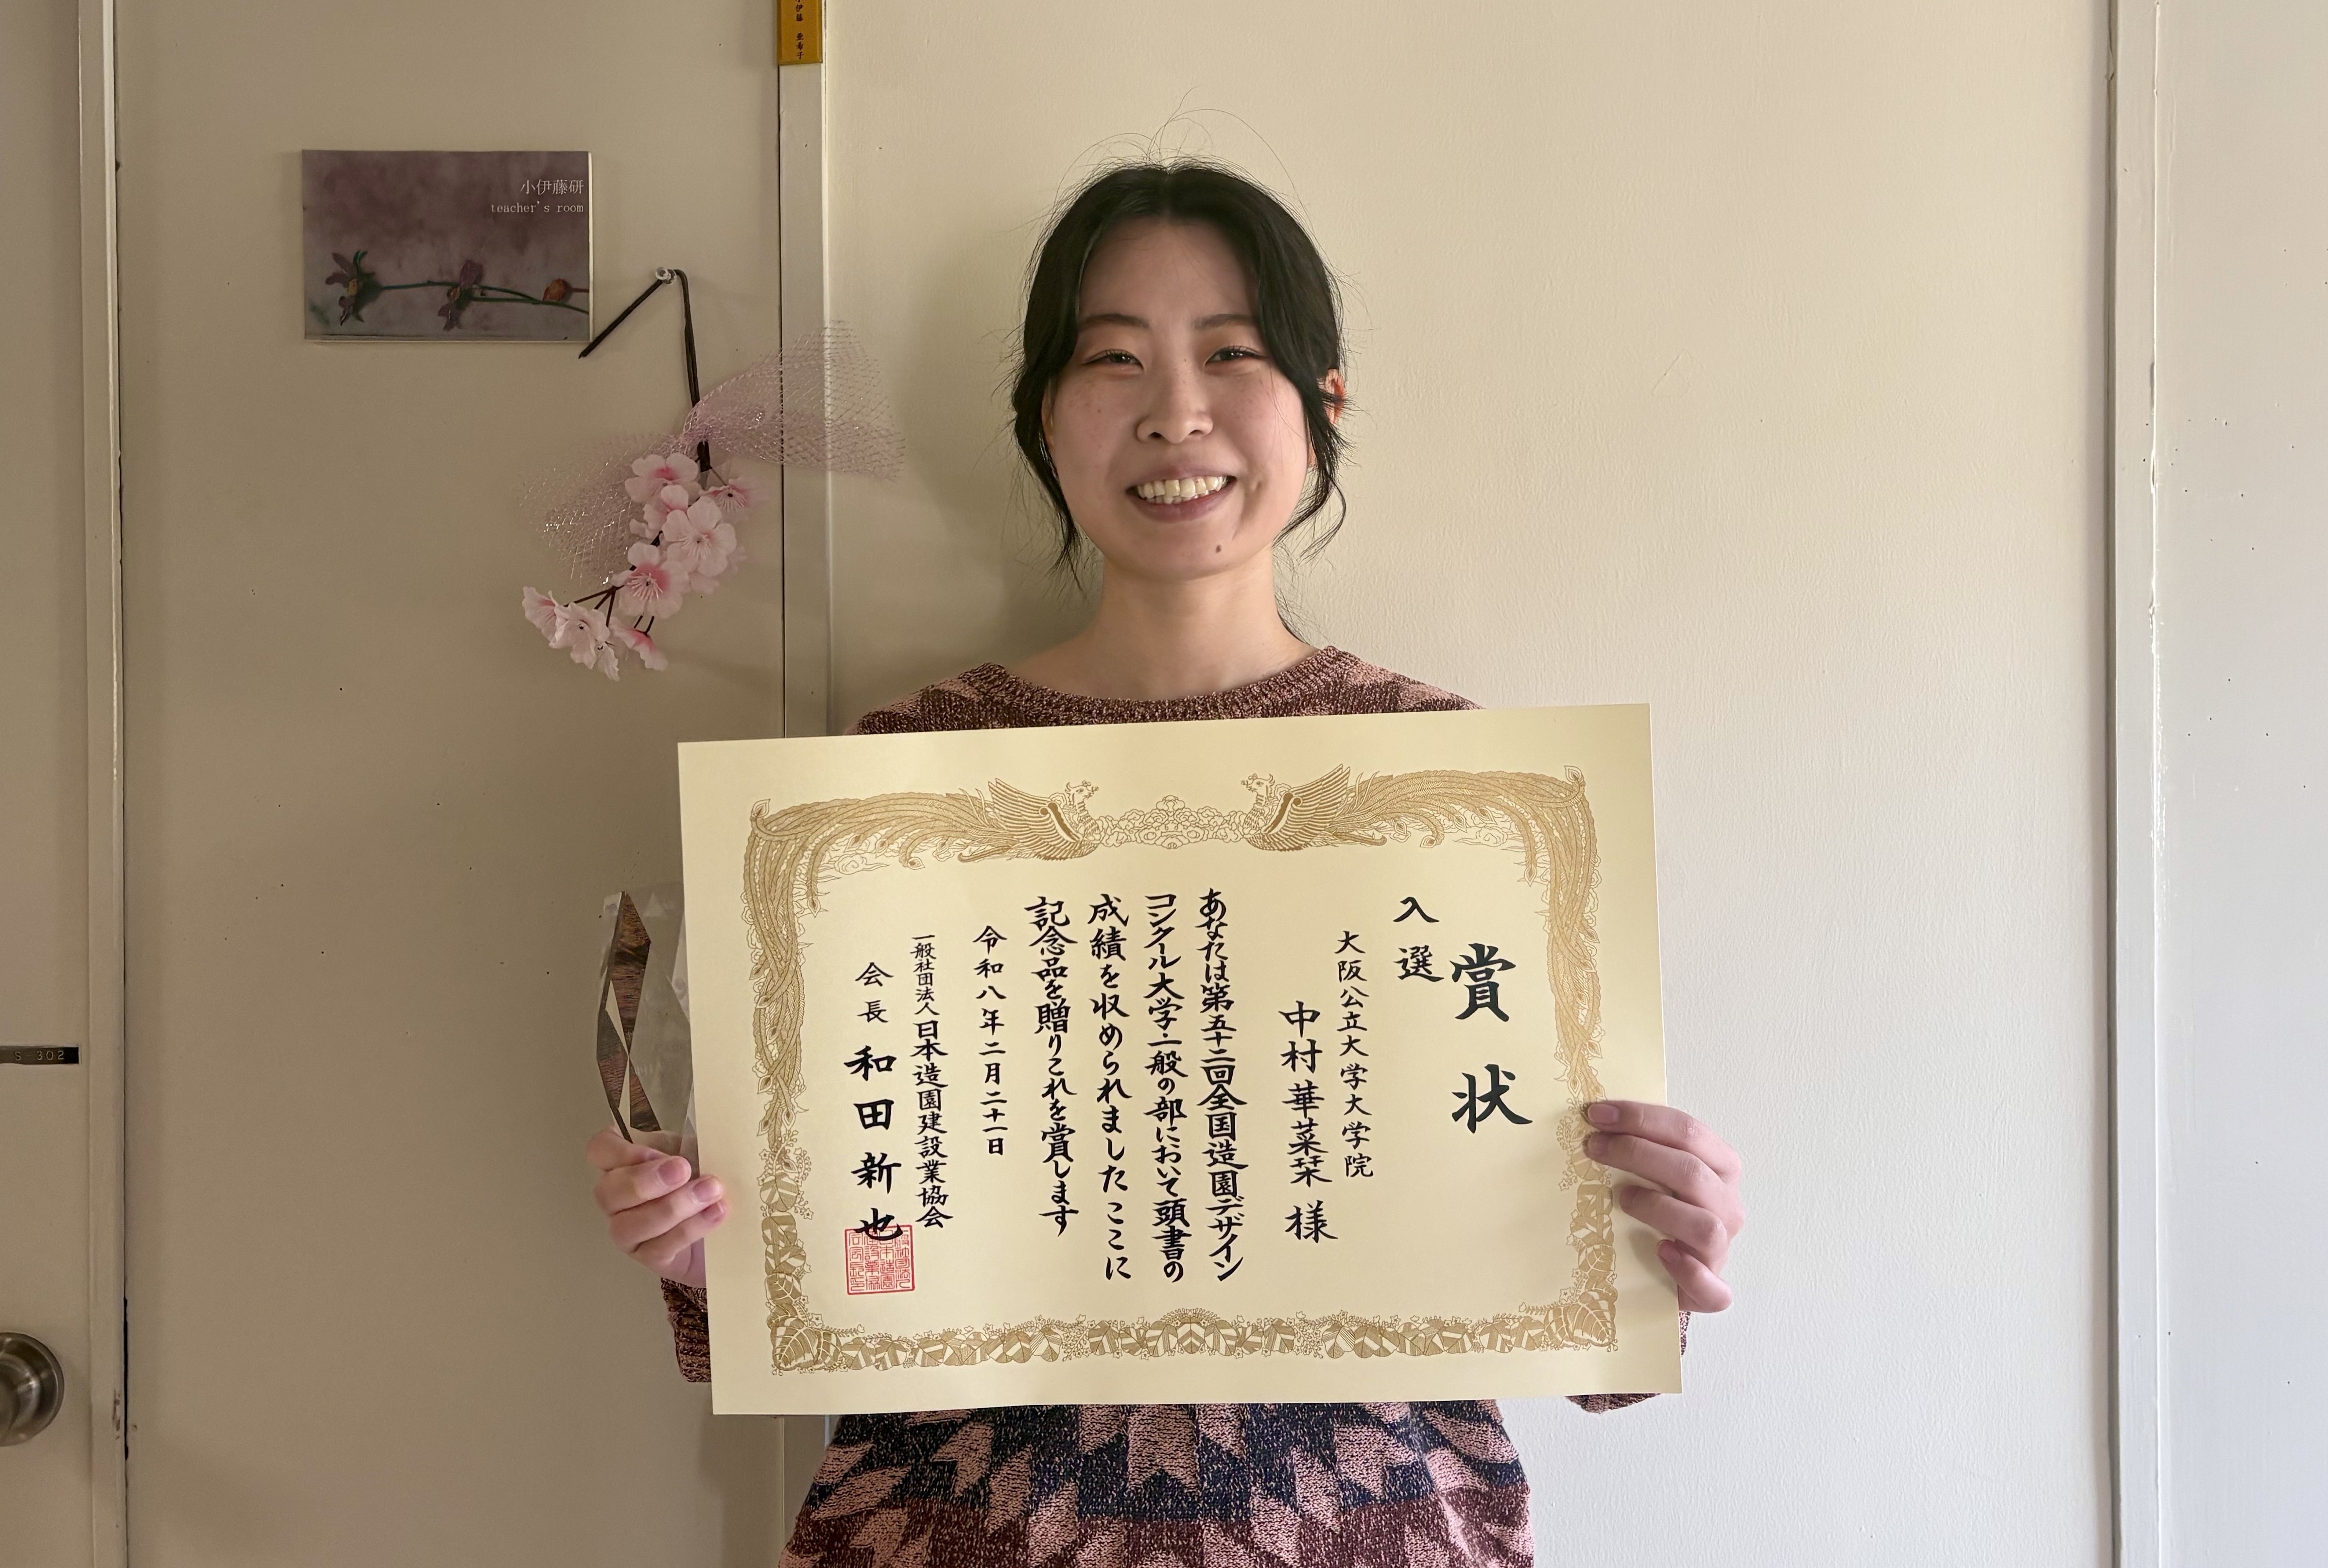 小伊藤 亜希子
小伊藤研
teacher's room
S-302
賞状
入選
大阪公立大学大学院
中村華菜栞 様
あなたは第五十二回全国造園デザイン
コンクール大学・一般の部において頭書の
成績を収められましたここに
記念品を贈りこれを賞します
令和八年二月二十一日
一般社団法人日本造園建設業協会
会長 和田新也